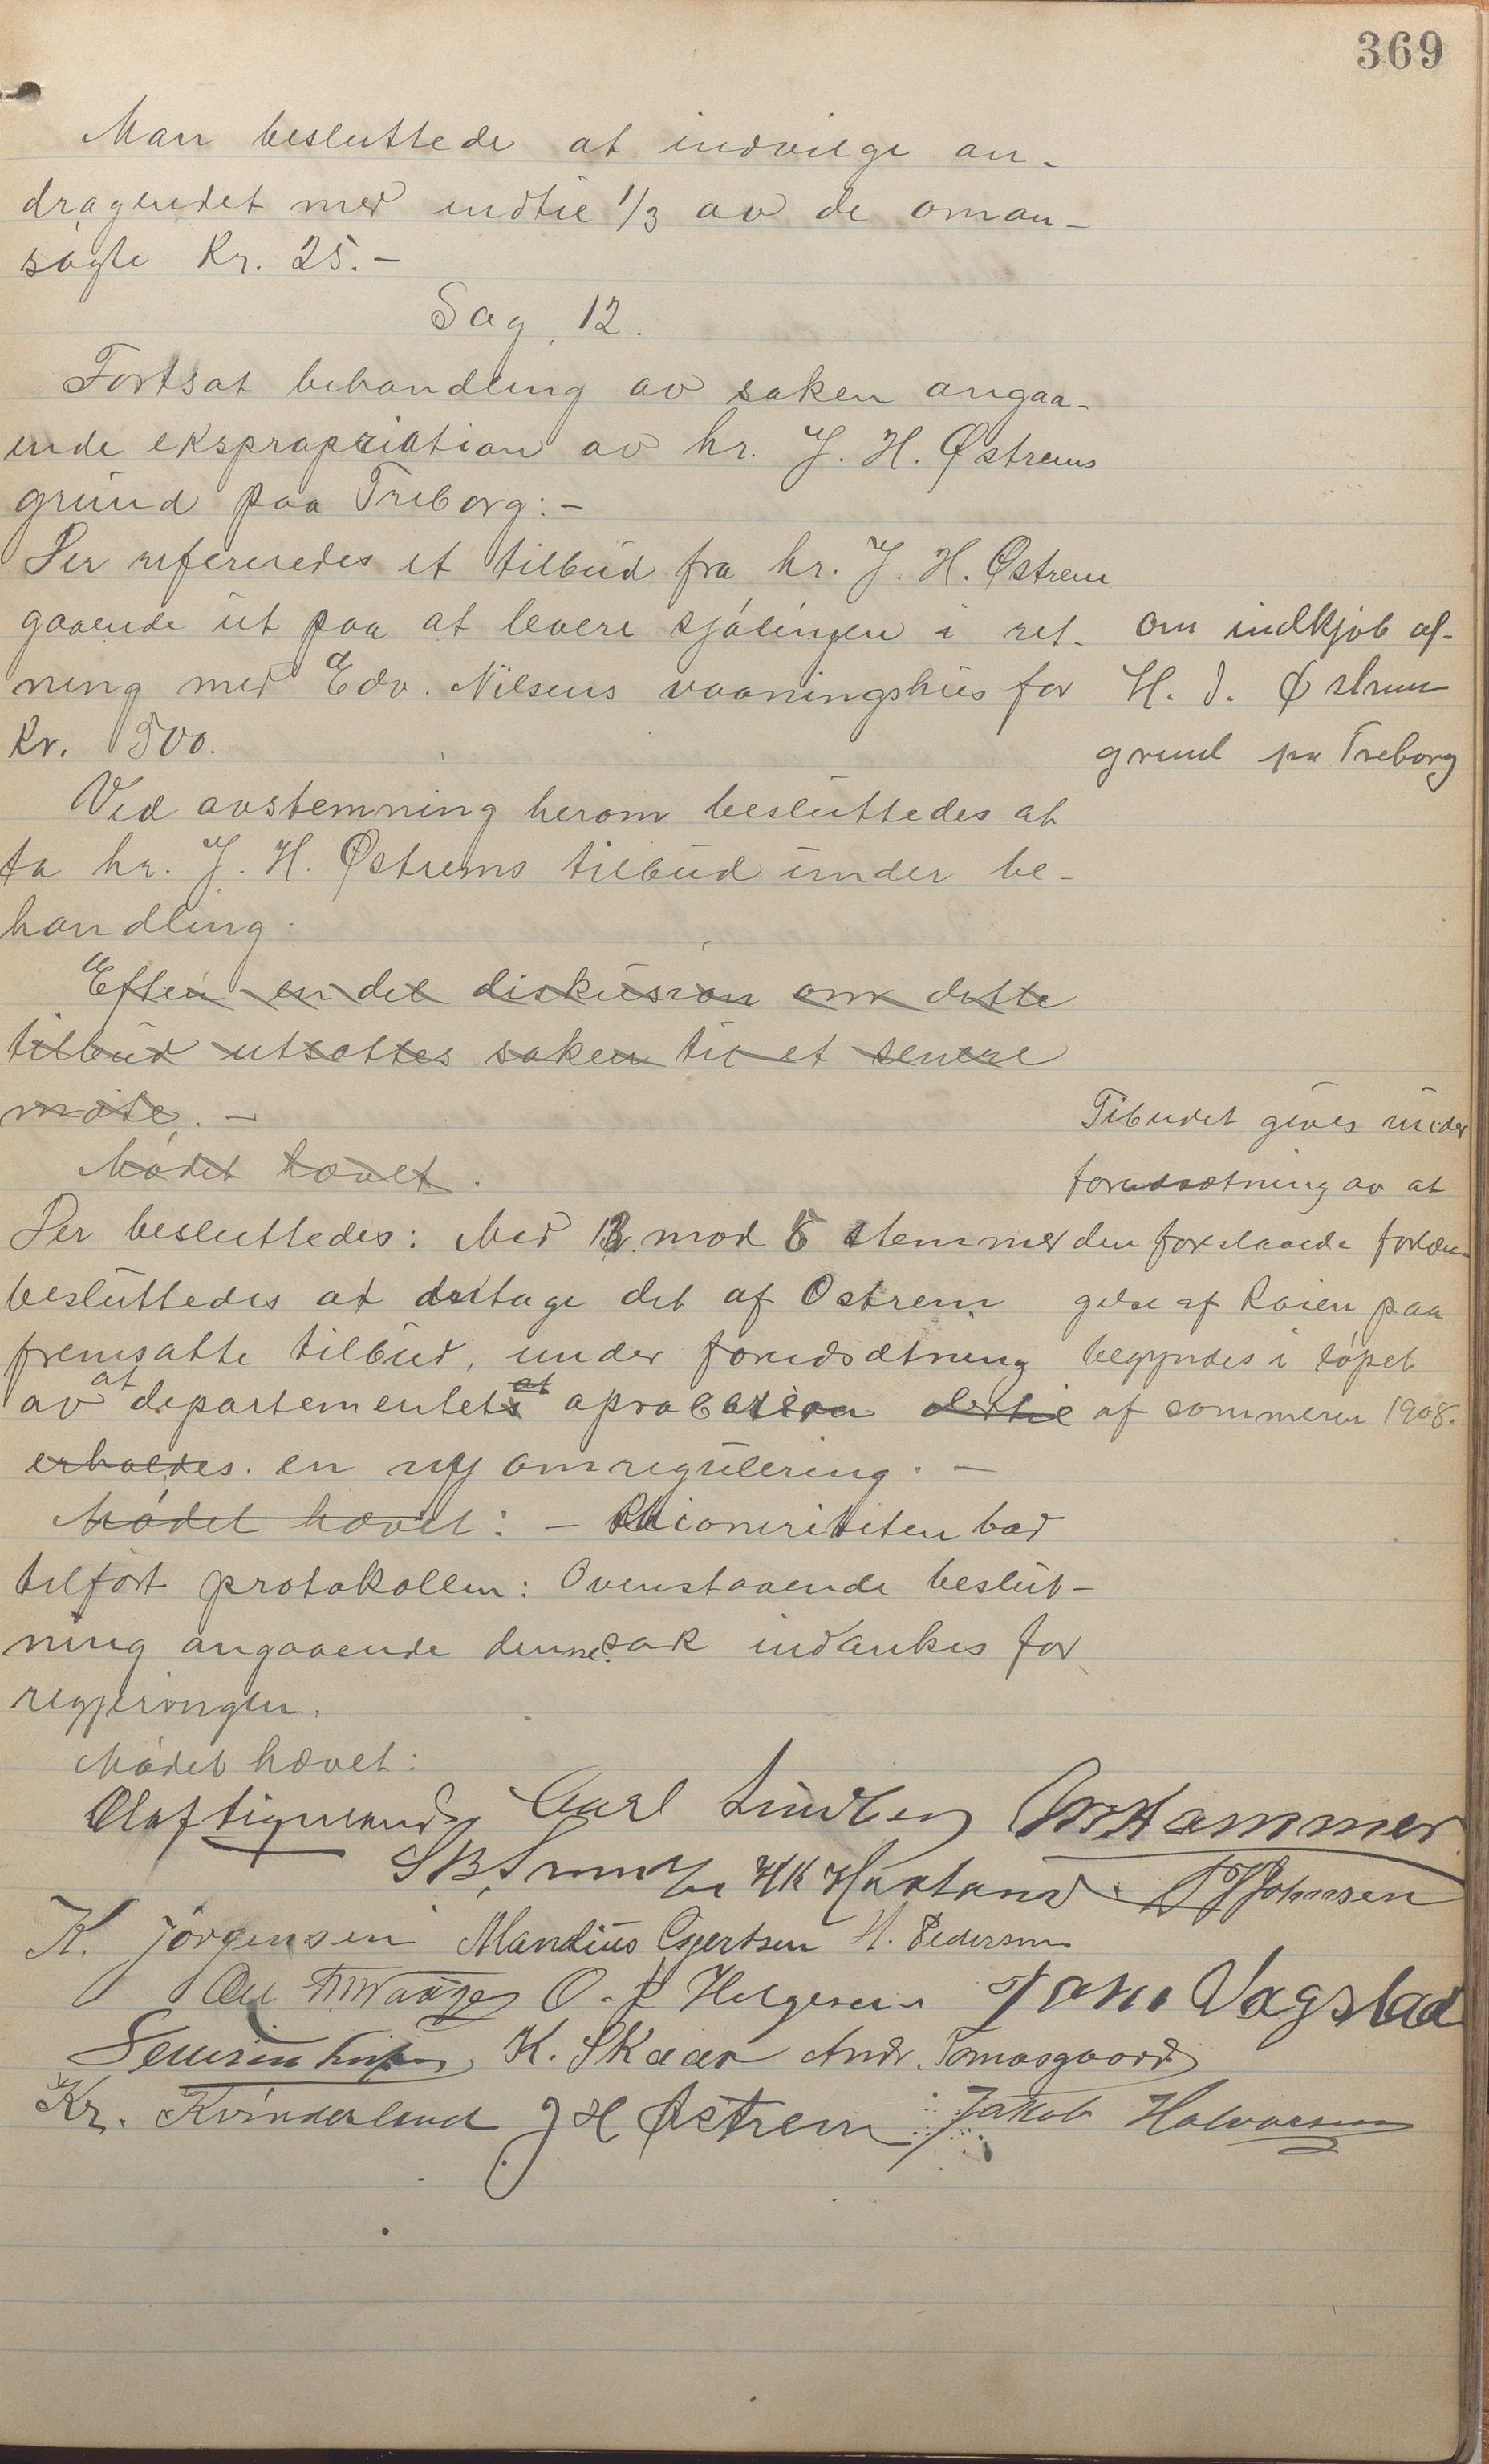 369
Man besluttede at indvilge an-
dragendet med indtil 1/3 av de oman-
søgte Kr. 25.-
Sag 12.
Fortsat behandling av saken angaa-
ende ekspropriation av hr. J. H. Østrems
grund paa Treborg:-
Der refereredes et tilbud fra hr. J. H. Østrem
gaaende ut paa at levere sjølinjen i ret-
ning med Edv. Nilsens vaaningshus for
Kr. 500.
om indkjøb af
H. J. Østrem
grund pa Treborg
Ved avstemning herom besluttedes at
ta hr. J. H. Østrems tilbud under be-
handling.
Efter en del diskusion om dette
tilbud utsattes saken til et senere
møte. -
Mødet hævet.
Der besluttedes: Med mod stemmer
besluttedes at tage det af Ostrem
fremsatte tilbud, under forudsætning
av at departementets at aprobation dertil
erholdes. en ny omregulering. -
Tibudet gives under
forudsætning av at
den foreslaaede forlæn-
gelse af Kaien paa
begyndes i løpet
af sommeren 1908.
Mødet hævet: - Minoriteten bad
tilført protokollen: Ovenstaaende beslut-
ning angaaende denne sak indankes for
regjeringen.
Mødet hævet:
Olaf Carl Lindberg Hammer
HK Havland Johnsen
K. Jørgensen Mandius Egertsen H. Pedersen
O. Helgesen Vagstad
Severin K. Skaar Andr. Tomasgaard
Kr. Kvinderland J H Østrem Jakob Halvorsen